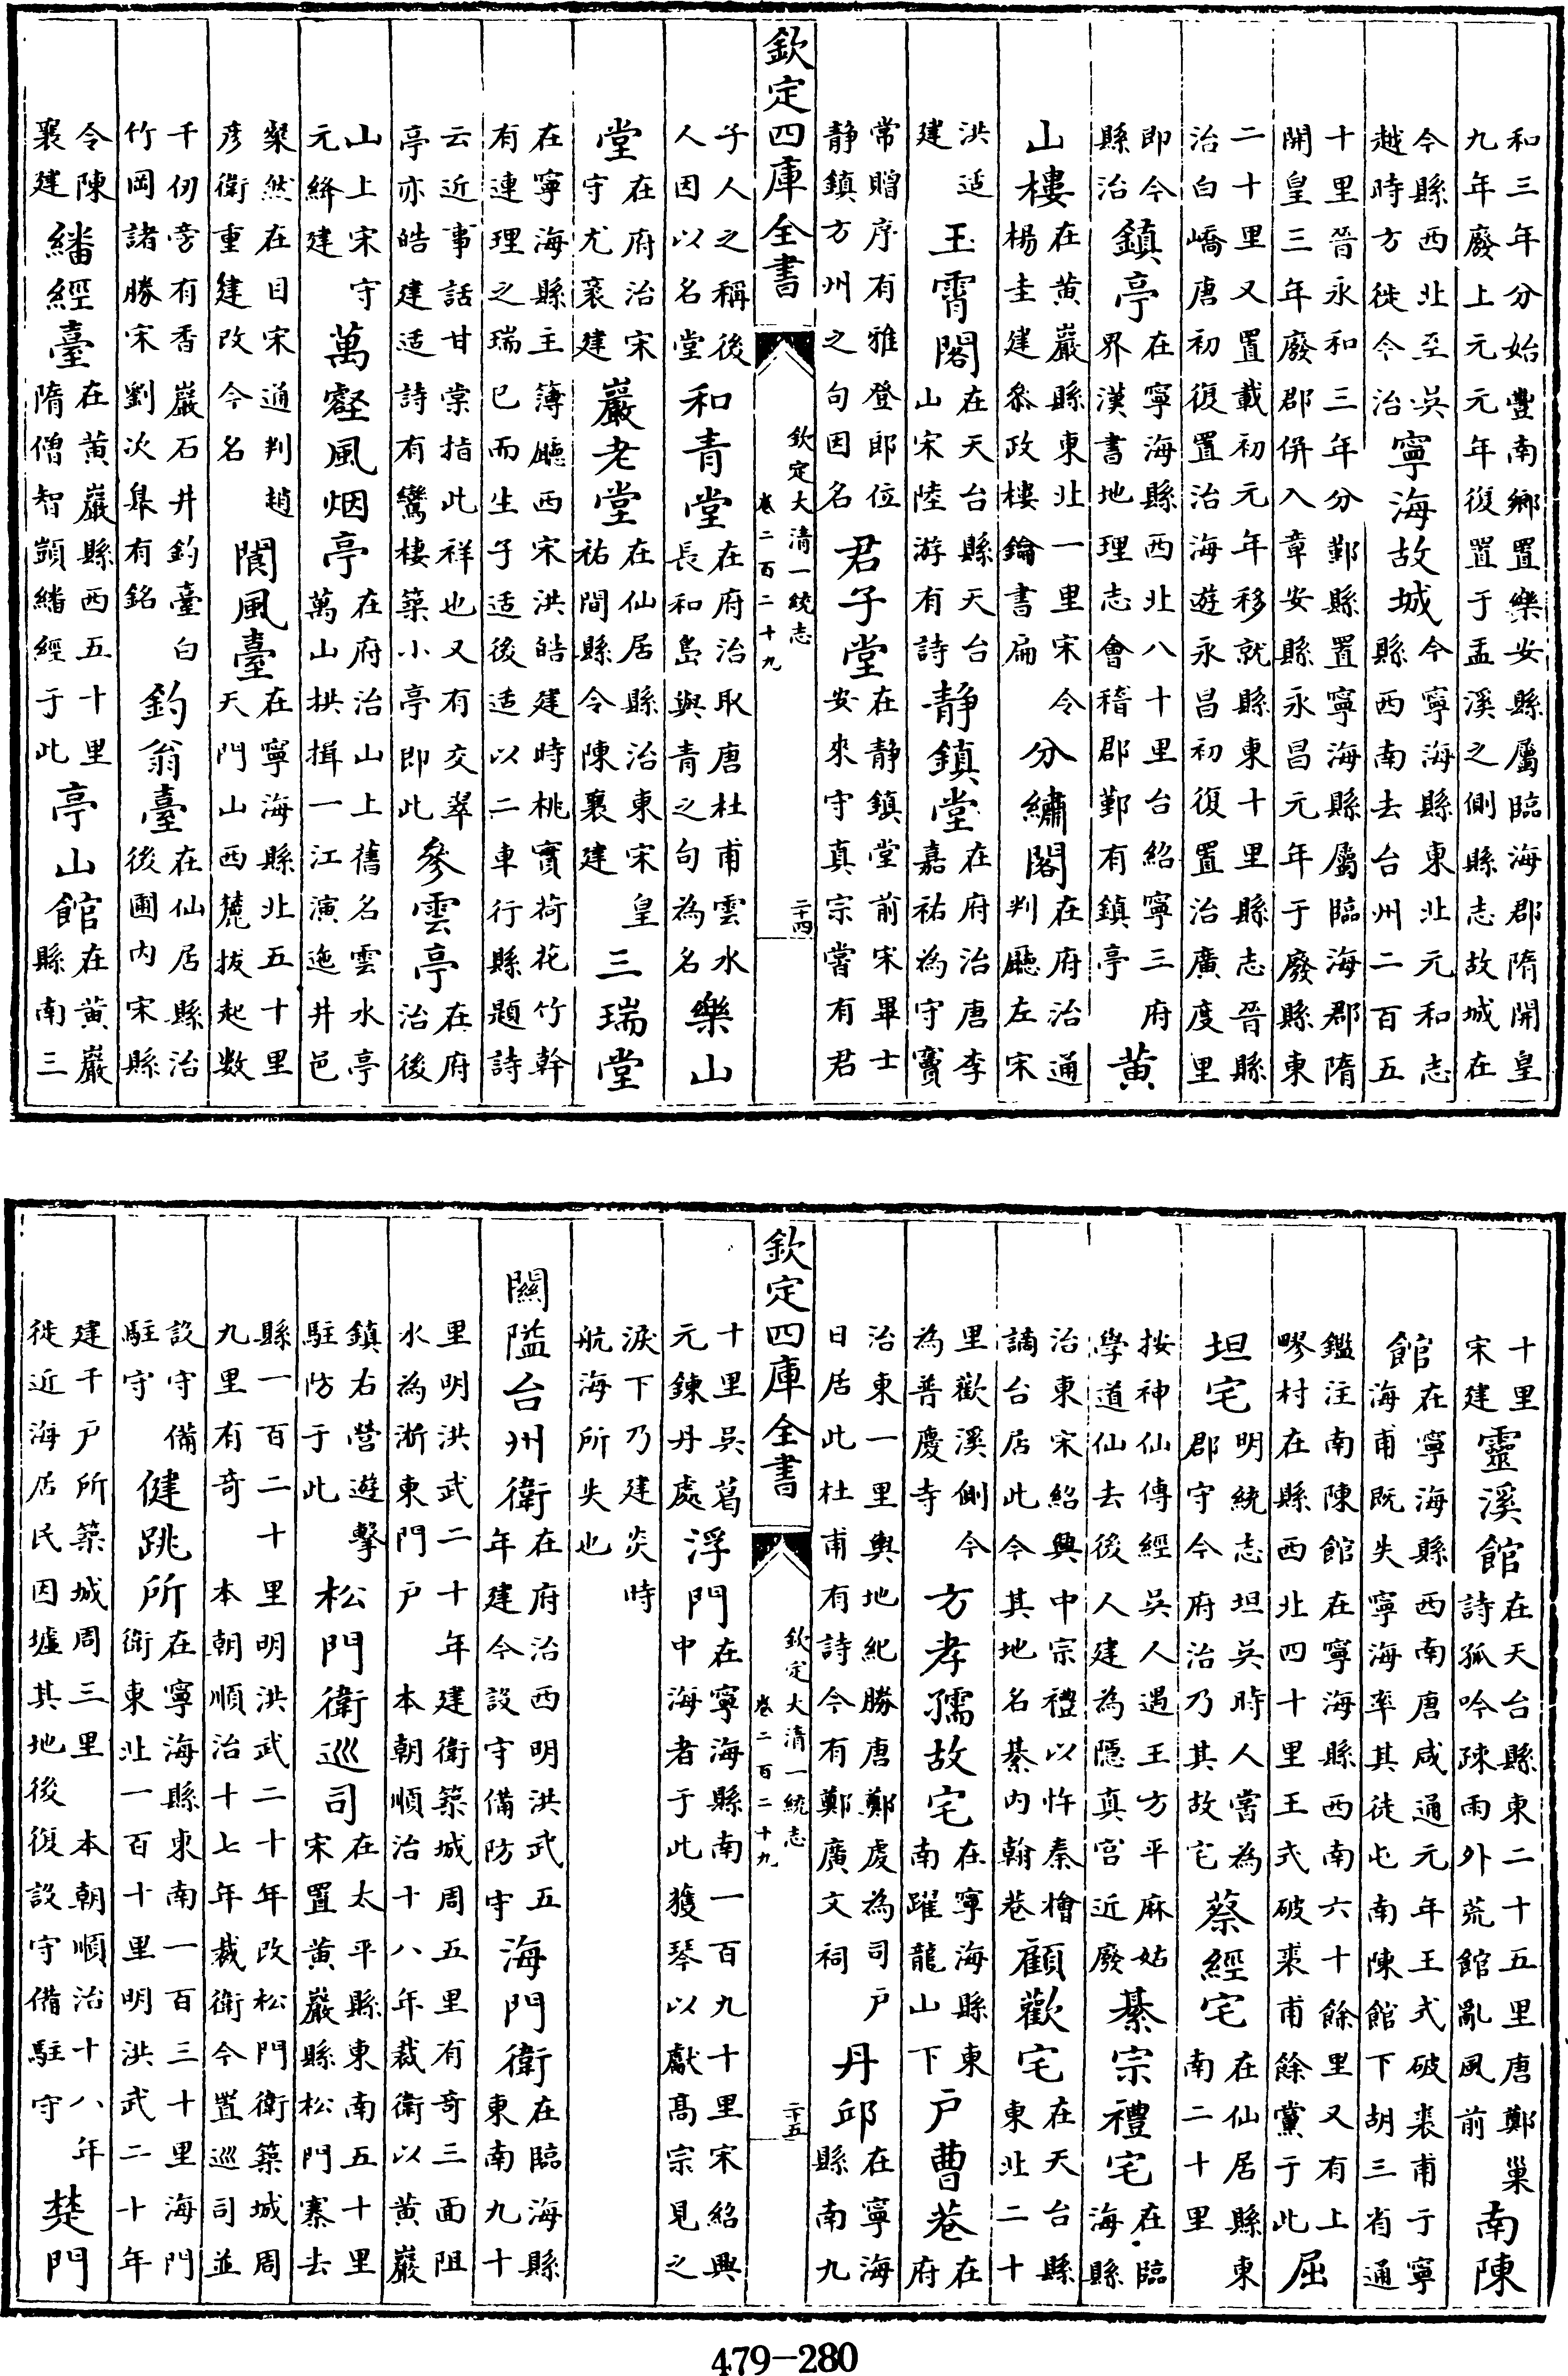 和三年分始豐南鄉置樂安縣屬臨海郡隋開皇
九年廢上元元年復置于孟溪之側縣志故城在
今縣西北至吳
越時方徙今治
寧海故城
今寧海縣東北元和志
縣西南去台州二百五
十里晉永和三年分鄞縣置寧海縣屬臨海郡隋
開皇三年廢郡併入章安縣永昌元年于廢縣東
二十里又置載初元年移就縣東十里縣志晉縣
治白嶠唐初復置治海遊永昌初復置治廣度里
即今
縣治
鎮亭
在寧海縣西北八十里台紹寧三府
界漢書地理志會稽郡鄞有鎮亭
黄
山樓
在黄巖縣東北一里宋令
楊圭建叅政樓鑰書扁
分繡閣
在府治通
判廳左宋
洪适
建
玉霄閣
在天台縣天台
山宋陸游有詩
靜鎮堂
在府治唐李
嘉祐為守竇
常贈序有雅登郎位
靜鎮方州之句因名
君子堂
在靜鎮堂前宋畢士
安來守真宗嘗有君
欽定四庫全書
欽定大清一統志
卷二百二十九
二十四
子人之稱後
人因以名堂
和青堂
在府治取唐杜甫雲水
長和島與青之句為名
樂山
堂
在府治宋
守尤袤建
巖老堂
在仙居縣治東宋皇
祐間縣令陳襄建
三瑞堂
在寧海縣主簿廳西宋洪皓建時桃實荷花竹幹
有連理之瑞已而生子适後适以二車行縣題詩
云近事話甘棠指此祥也又有交翠
亭亦皓建适詩有鸞棲築小亭即此
參雲亭
在府
治後
山上宋守
元絳建
萬壑風烟亭
在府治山上舊名雲水亭
萬山拱揖一江演迤井邑
粲然在目宋通判趙
彦衛重建改今名
閬風臺
在寧海縣北五十里
天門山西麓拔起数
千仞旁有香巖石井釣臺白
竹岡諸勝宋劉次臯有銘
釣翁臺
在仙居縣治
後圃内宋縣
令陳
襄建
繙經臺
在黄巖縣西五十里
隋僧智顗繙經于此
亭山館
在黄巖
縣南三
十里
宋建
靈溪館
在天台縣東二十五里唐鄭巢
詩孤吟疎雨外荒館亂風前
南陳
館
在寧海縣西南唐咸通元年王式破裘甫于寧
海甫既失寧海率其徒屯南陳館下胡三省通
鑑注南陳館在寧海縣西南六十餘里又有上
疁村在縣西北四十里王式破裘甫餘黨于此
屈
坦宅
明統志坦吳時人嘗為
郡守今府治乃其故宅
蔡經宅
在仙居縣東
南二十里
按神仙傳經吳人遇王方平麻姑
學道仙去後人建為隱真宫近廢
綦宗禮宅
在臨
海縣
治東宋紹興中宗禮以忤秦檜
謫台居此今其地名綦内翰巷
顧歡宅
在天台縣
東北二十
里歡溪側今
為普慶寺
方孝孺故宅
在寧海縣東
南躍龍山下
户曹巷
在
府
治東一里輿地紀勝唐鄭虔為司户
日居此杜甫有詩今有鄭廣文祠
丹邱
在寧海
縣南九
欽定四庫全書
欽定大清一統志
卷二百二十九
二十五
十里吳葛
元鍊丹處
浮門
在寧海縣南一百九十里宋紹興
中海者于此獲琴以獻高宗見之
淚下乃建炎時
航海所失也
關隘
台州衛
在府治西明洪武五
年建今設守備防守
海門衛
在臨海縣
東南九十
里明洪武二十年建衛築城周五里有奇三面阻
水為浙東門户 本朝順治十八年裁衛以黄巖
鎮右營遊擊
駐防于此
松門衛巡司
在太平縣東南五十里
宋置黄巖縣松門寨去
縣一百二十里明洪武二十年改松門衛築城周
九里有奇 本朝順治十七年裁衛今置巡司並
設守備
駐守
健跳所
在寧海縣東南一百三十里海門
衛東北一百十里明洪武二十年
建千户所築城周三里 本朝順治十八年
徙近海居民因墟其地後復設守備駐守
楚門
479-280